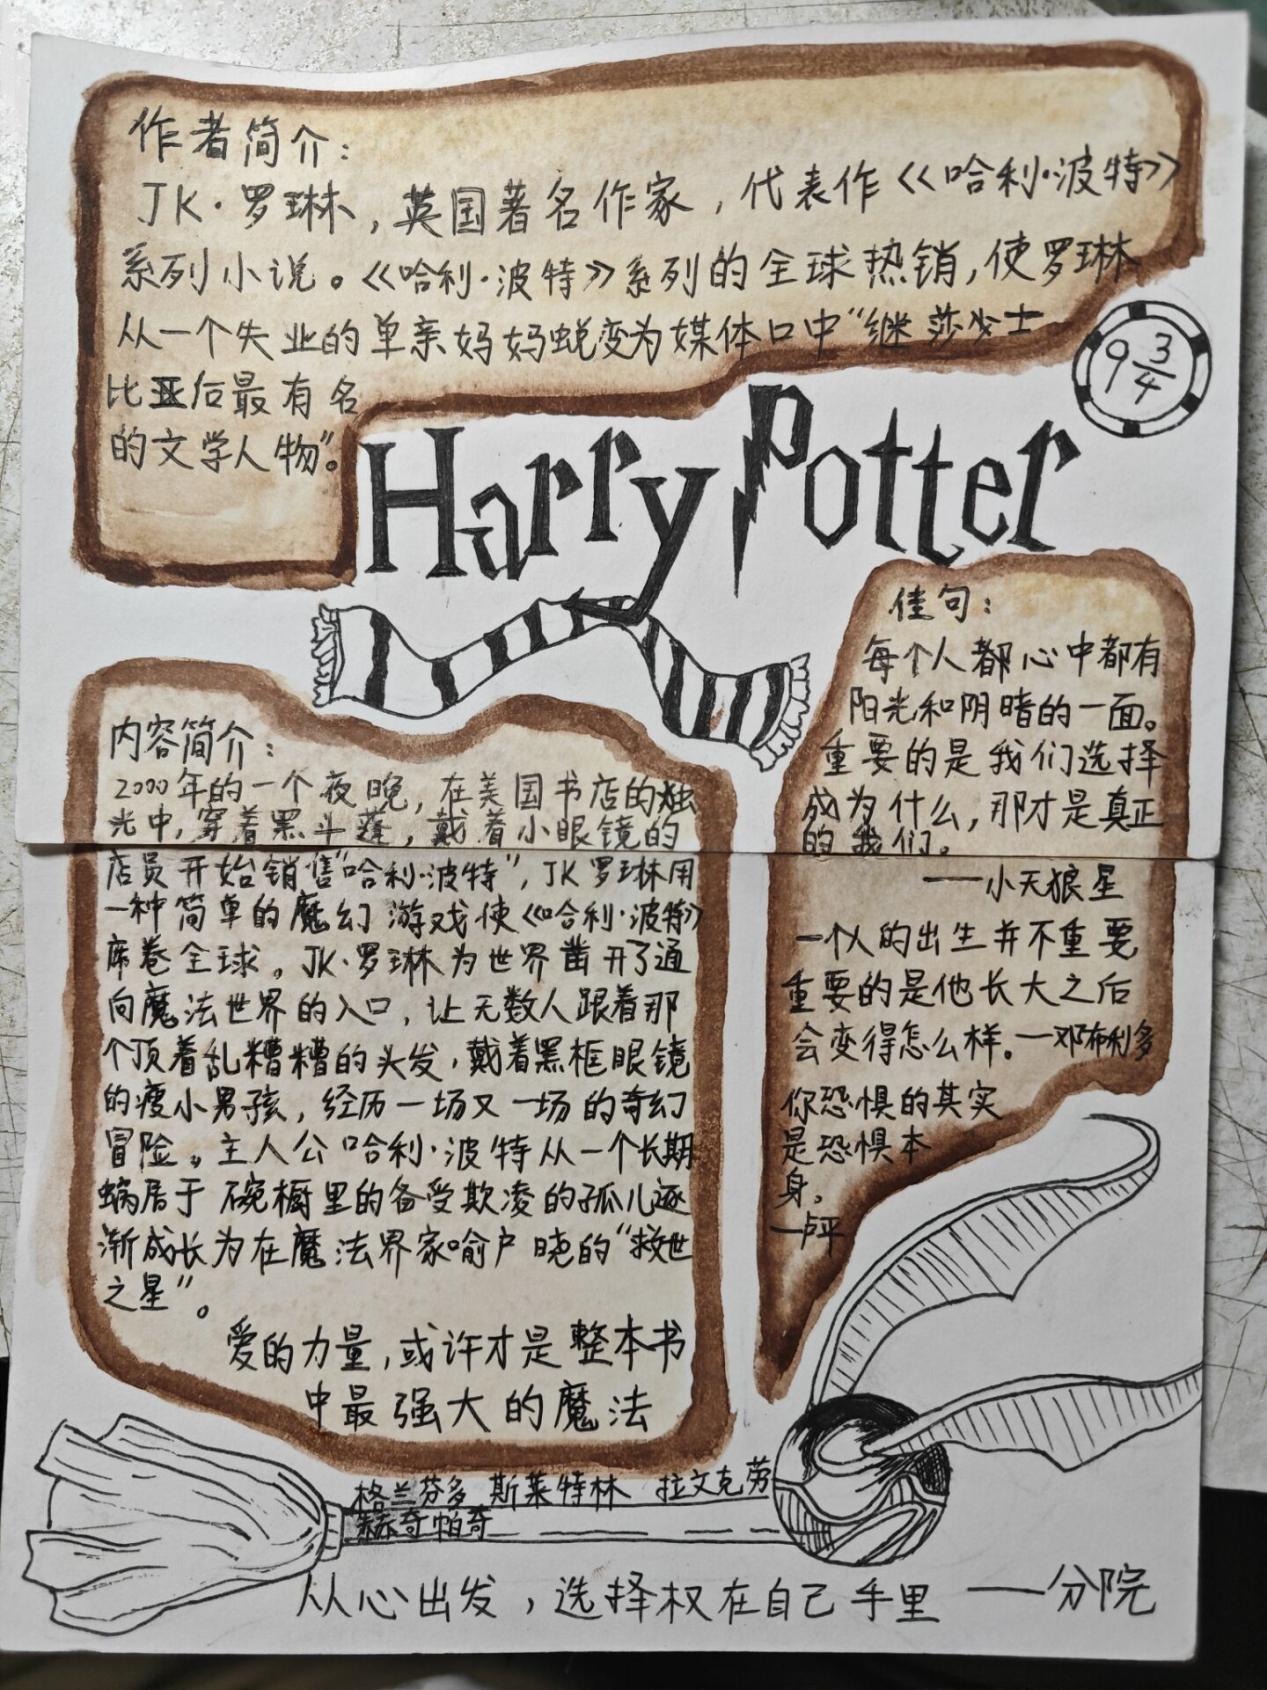 作者简介：
JK·罗琳，英国著名作家，代表作《哈利·波特》
系列小说。《哈利·波特》系列的全球热销，使罗琳
从一个失业的单亲妈妈蜕变为媒体口中“继莎少士
比亚后最有名
的文学人物”。
9 3/4
Harry Potter
佳句：
每个人都心中都有
阳光和阴暗的一面。
重要的是我们选择
成为什么，那才是真正
的我们。
——小天狼星
一个人的出生并不重要
重要的是他长大之后
会变得怎么样。—邓布利多
你恐惧的其实
是恐惧本
身。
—卢平
内容简介：
2000年的一个夜晚，在美国书店的烛
光中，穿着黑斗蓬，戴着小眼镜的
店员开始销售“哈利·波特”，JK罗琳用
一种简单的魔幻游戏使《哈利·波特》
席卷全球。JK·罗琳为世界凿开了通
向魔法世界的入口，让无数人跟着那
个顶着乱糟糟的头发，戴着黑框眼镜
的瘦小男孩，经历一场又一场的奇幻
冒险。主人公哈利·波特从一个长期
蜗居于碗橱里的备受欺凌的孤儿逐
渐成长为在魔法界家喻户晓的“救世
之星”。
爱的力量，或许才是整本书
中最强大的魔法
格兰芬多 斯莱特林 拉文克劳
赫奇帕奇
从心出发，选择权在自己手里 ——分院